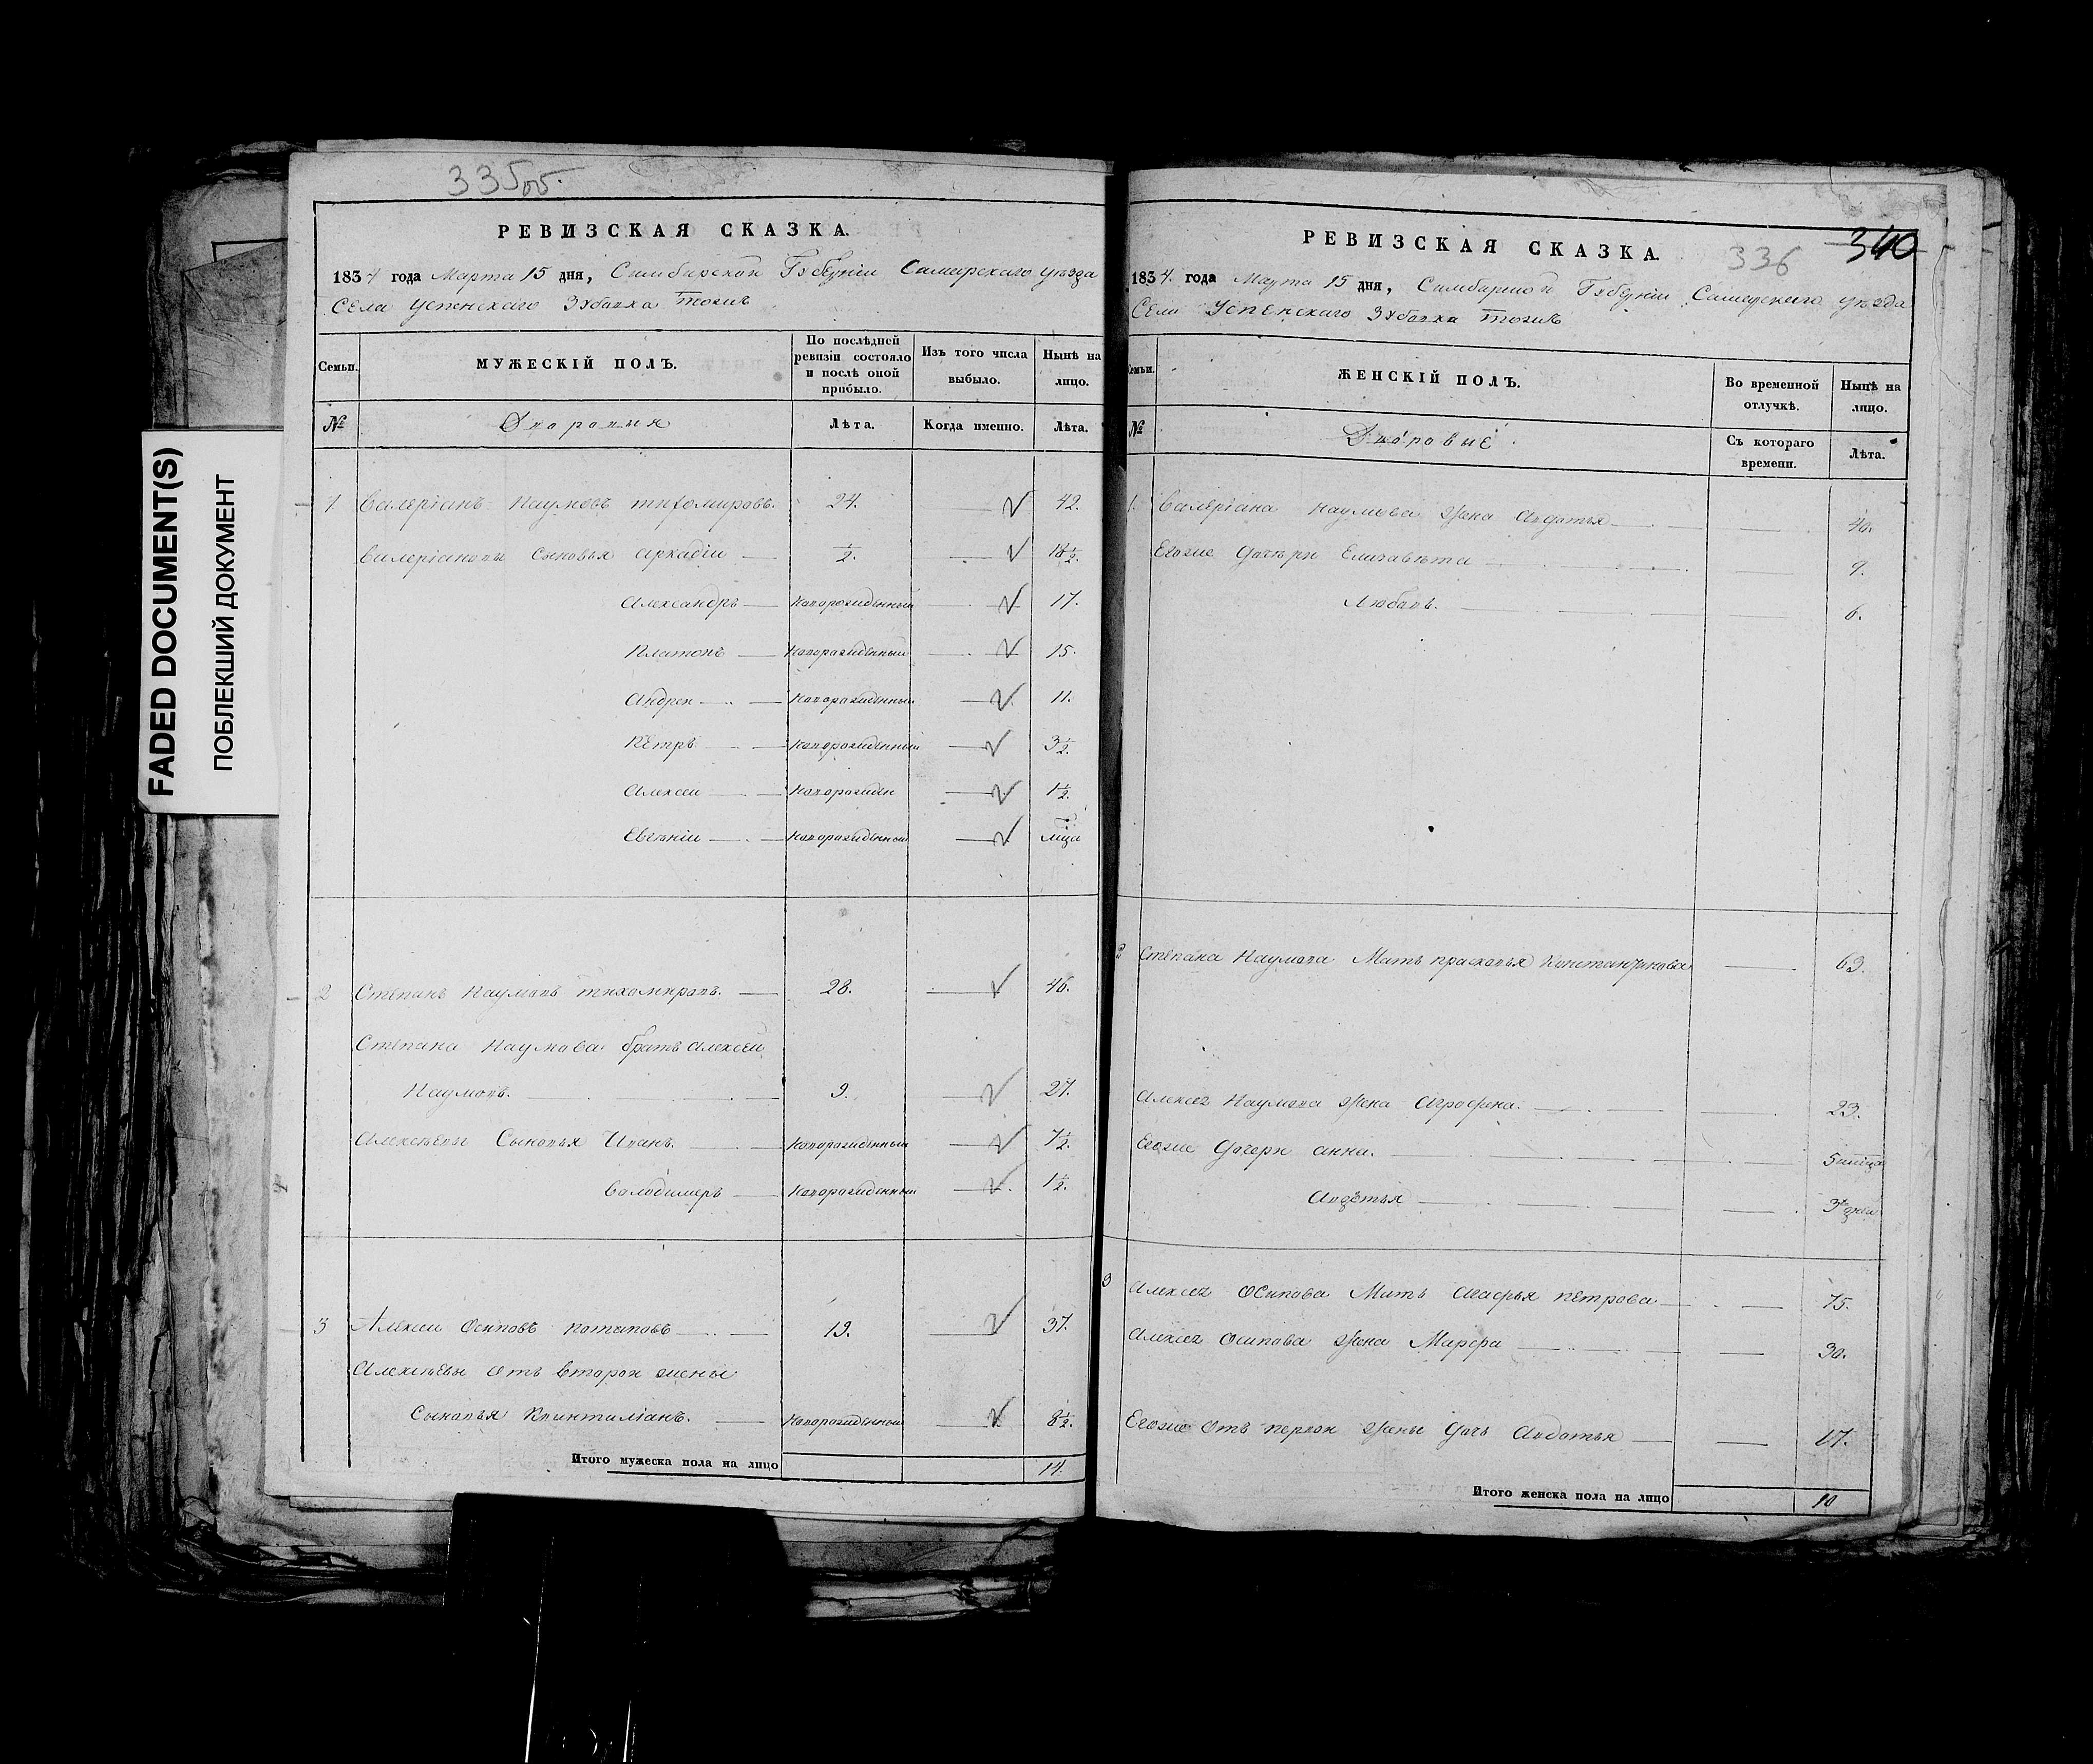 FADED DOCUMENT(S)
ПОБЛЕКШИЙ ДОКУМЕНТ
335об.
РЕВИЗСКАЯ СКАЗКА.
1834 года Марта 15 дня, Симбирской Губерніи Самарскаго уезда
Села Успенскаго Зубовка тожъ
Семьи. МУЖЕСКІЙ ПОЛЪ. По послѣдней ревизіи состояло и послѣ оной прибыло. Изъ того числа выбыло. Нынѣ на лицо.
№ Дворовыя Лѣта. Когда именно. Лѣта.
1. Валеріанъ Наумовъ тихомировъ. 24. 42.
Валеріановы сыновья аркадіи 1/2. 18 1/2.
Александръ Новорожденный 17.
Платонъ Новорожденный 15.
Андреи Новорожденный 11.
Петръ Новорожденный 3 1/2.
Алексеи Новорожден 1 1/2.
Евгеніи Новорожденный мца
2 Степанъ Наумовъ тихомировъ. 28. 46.
Степана Наумова братъ Алексеи
Наумовъ. 9. 27.
Алексѣевы Сыновья Иванъ. Новорожденный 7 1/2.
Володимеръ Новорожденный 1 1/2.
3 Алексеи Осиповъ Потаповъ 19. 37.
Алексѣевы Отъ второи жены
Сыновья Квинтиліанъ. Новорожденный 8 1/2.
Итого мужеска пола на лицо 14.
РЕВИЗСКАЯ СКАЗКА.
336 340
1834 года Марта 15 дня, Симбирской Губерніи Самарскаго уезда
Села Успенскаго Зубовка тожъ
Семьи. ЖЕНСКІЙ ПОЛЪ. Во временной отлучкѣ. Нынѣ на лицо.
№ Дворовые. Съ котораго времени. Лѣта.
1. Валеріана Наумова жена Авдотья 40.
Егоже дочери Елизавѣта 9.
Любовь. 6.
2 Степана Наумова Мать прасковья Константинова 63.
Алексея Наумова жена Аграфена. 23.
Егоже дочери анна. 5 мца
Авдотья 3 дни
3 Алексея Осипова Мать Агафья петрова 75.
Алексея Осипова жена Марфа 30.
Егоже Отъ первои жены дочь Авдотья 17.
Итого женска пола на лицо 10